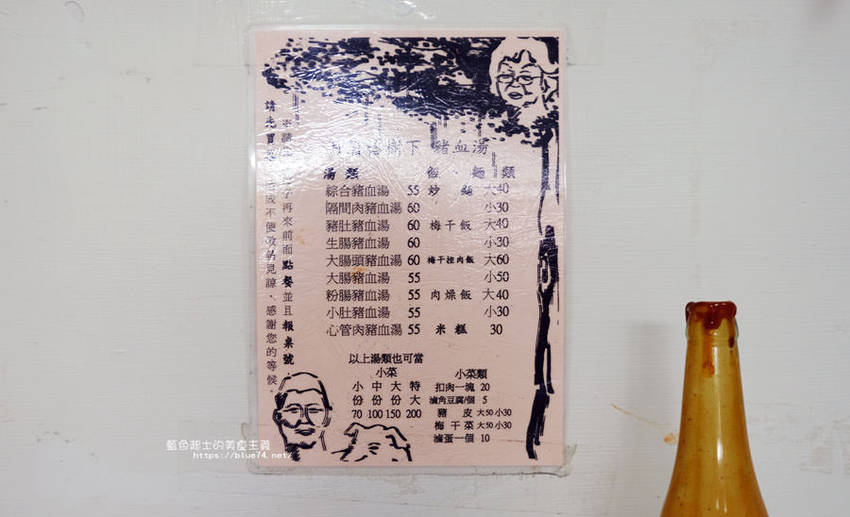 樹下 豬血湯
湯類
綜合豬血湯 55
隔間肉豬血湯 60
豬肚豬血湯 60
生腸豬血湯 60
大腸頭豬血湯 60
大腸豬血湯 55
粉腸豬血湯 55
小肚豬血湯 55
心管肉豬血湯 55
飯、麵類
炒麵 大40
小30
梅干飯 大40
小30
梅干控肉飯 大60
小50
肉燥飯 大40
小30
米糕 30
以上湯類也可當
小菜
小 中 大 特
份 份 份 大
70 100 150 200
小菜類
扣肉一塊 20
滷角豆腐/個 5
豬皮 大50 小30
梅干菜 大50 小30
滷蛋一個 10
再來前面點餐並且報桌號。
請先買
成不便敬請見諒、感謝您的等候。
藍色起士的美食主義
https://blue74.net/